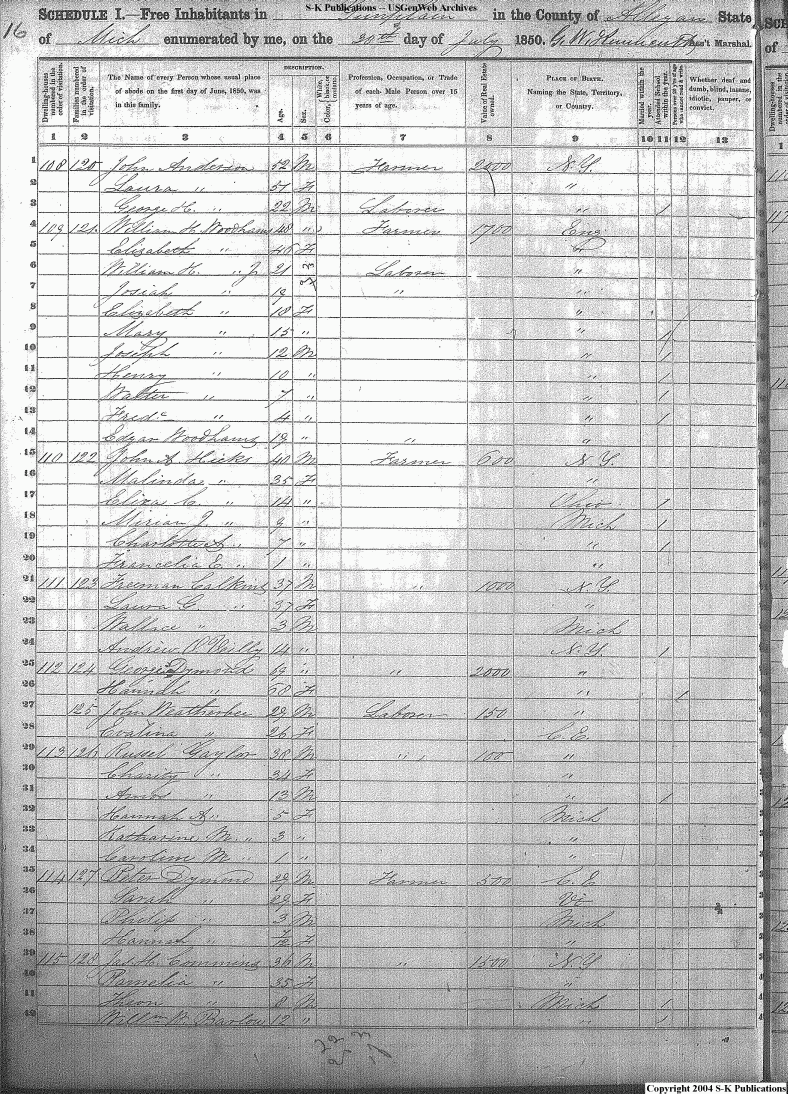 S-K Publications -- USGenWeb Archives
SCHEDULE I.—Free Inhabitants in in the County of Allegan State
16 of Mich enumerated by me, on the 20th day of July 1850. Ass't Marshal.
Dwelling-houses numbered in the order of visitation.
Families numbered in the order of visitation.
The Name of every Person whose usual place of abode on the first day of June, 1850, was in this family.
DESCRIPTION.
Age.
Sex.
Color,
Profession, Occupation, or Trade of each Male Person over 15 years of age.
Value of Real Estate owned.
PLACE OF BIRTH. Naming the State, Territory, or Country.
Married within the year.
Attended School within the year.
Persons over 20 y'rs of age who cannot read & write.
Whether deaf and dumb, blind, insane, idiotic, pauper, or convict.
1 2 3 4 5 6 7 8 9 10 11 12 13
1 108 120 John Anderson 52 M Farmer 2000 N.Y.
2 Laura " 51 F "
3 George H. " 22 M Laborer " /
4 109 121 William H. Woodhams 48 " Farmer 1700 Eng
5 Elizabeth " 46 F "
6 William H. " Jr 21 Laborer "
7 Josiah " 19 " "
8 Elizabeth " 18 F "
9 Mary " 15 " " /
10 Joseph " 12 M " /
11 Henry " 10 " " /
12 Walter " 7 " " /
13 Fredc " 4 " " /
14 Edgar Woodhams 19 " " "
15 110 122 John A Hicks 40 M Farmer 600 N.Y.
16 Malinda " 35 F "
17 Eliza C. " 14 " Ohio /
18 Mirian J. " 9 " Mich /
19 Charlotte A. " 7 " " /
20 Francelia E. " 1 " "
21 111 123 Freeman Calkins 37 M " 1000 N.Y.
22 Laura G. " 37 F "
23 Wallace " 3 M Mich
24 Andrew O'Reilly 14 " N.Y. /
25 112 124 George Dymond 69 " " 2000 "
26 Hannah " 68 F " /
27 125 John Weatherbee 29 M Laborer 150 "
28 Evalina " 26 F C.E.
29 113 126 Russel Gaylor 38 M " 100 "
30 Charity " 34 F "
31 Amos " 13 M " /
32 Hannah A. " 5 F Mich
33 Katharine M. " 3 " "
34 Caroline M. " 1 " "
35 114 127 Peter Dymond 29 M Farmer 500 C.E.
36 Sarah " 29 F
37 Philip " 3 M Mich
38 Hannah " F "
39 115 128 Jas. H. Commins 36 M " 1500 N.Y.
40 Pamelia " 35 F "
41 Hiron " 8 M Mich /
42 Willm W. Barlow 12 " " /
Copyright 2004 S-K Publications